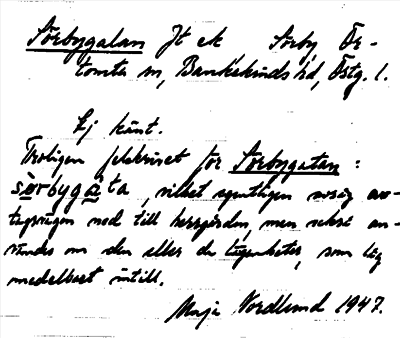 Sörbygalan Jt ek Sörby, Ör-
tomta sn, Bankekinds hd, Östg. l.
Ej känt.
Troligen felskrivet för Sörbygatan:
sörbygata, vilket egentligen avsåg av-
tagsvägen ned till herrgården, men också an-
vändes om den eller de lägenheter, som låg
medelbart intill.
Maja Nordlund 1947.